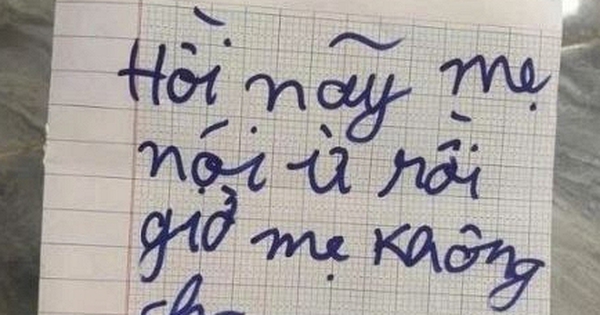 Hồi nãy mẹ
nói ừ rồi
giờ mẹ không